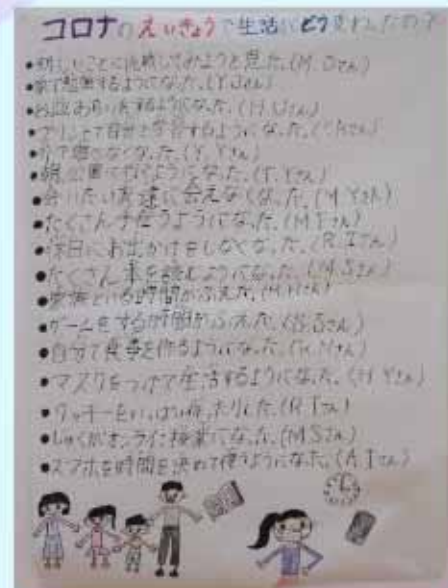 コロナのえいきょうで生活がどう変わったの?
●新しいことに挑戦してみようと思った。(M.Oさん)
●家で勉強するようになった。(Y.J
●お皿あらいをするようになった。(H.Uさん)
●プリントで自分で学習するようになった。
●外で遊べなくなった。(Y.Yさん)
●公園に行くようになった。(T.Yさん)
●会いたい友達に会えなくなった。(M.Yさん)
●たくさん手伝うようになった。(M.Iさん)
●休日にお出かけをしなくなった。(R.Iさん)
●たくさん本を読むようになった。(M.Sさん)
●家族といる時間がふえた。
●ゲームをする時間がふえた。
●自分で食事を作るようになった。
●マスクをつけて生活するようになった。(H.Yさん)
●クッキーをいっぱい作ったりした。(R.Iさん)
●じゅくがオンライン授業になった。(M.Sさん)
●スマホを時間を決めて使うようになった。(A.Iさん)